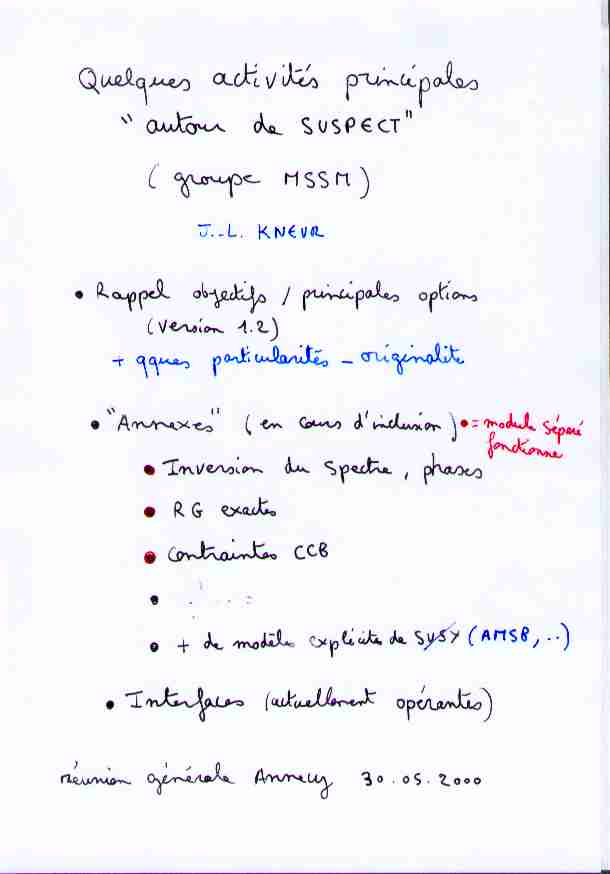 Quelques activités principales
"autour de SUSPECT"
(groupe MSSM)
J.-L. KNEUR
• Rappel objectifs / principales options
(version 1.2)
+ qques particularités - originalité
• "Annexes" (en cours d'inclusion) • = module séparé
fonctionne
• Inversion du spectre, phases
• RG exactes
• Contraintes CCB
•
• + de modèles explicites de SUSY (AMSB, ..)
• Interfaces (actuellement opérantes)
réunion générale Annecy 30.05.2000